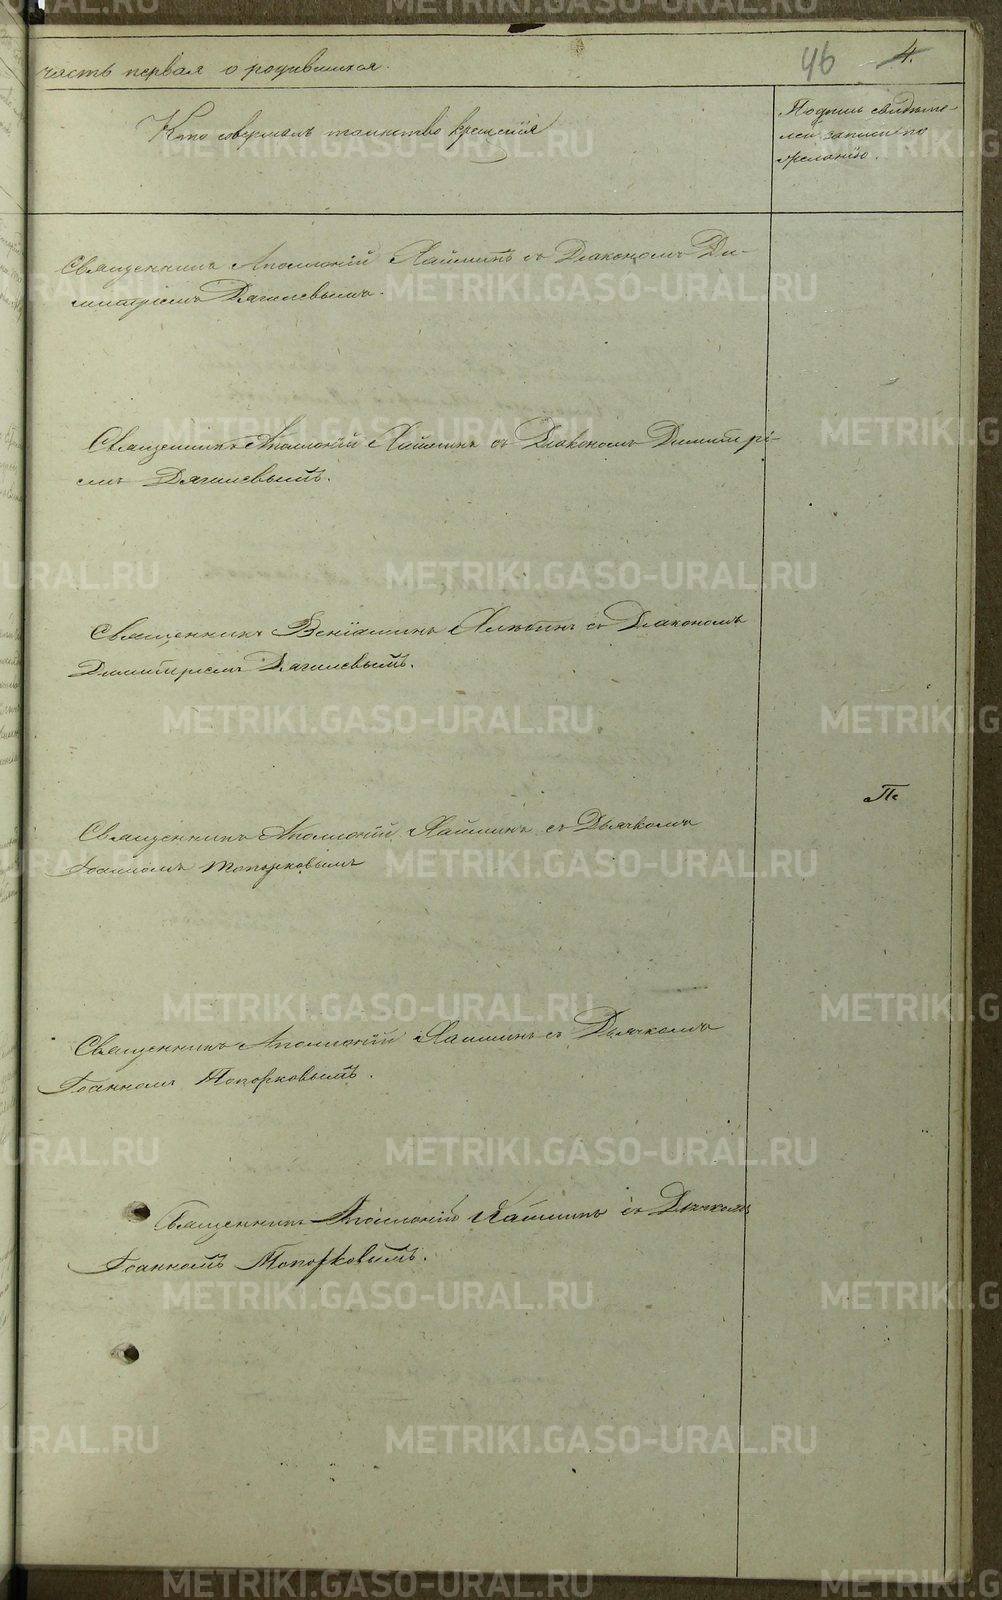 часть первая о родившихся.
46 4.
Кто совершалъ таинство крещенія
Подпись свидѣте-
лей записи по
желанію.
Священникъ Аполлоній Хаминъ съ Діакономъ Ди-
митріемъ Дягилевымъ.
Священникъ Аполлоній съ Діакономъ Димитрі-
емъ Дягилевымъ.
Священникъ Веніаминъ съ Діакономъ
Димитріемъ Дягилевымъ.
Священникъ Аполлоній съ Дьячкомъ
Іоанномъ Топорковымъ
Священникъ Аполлоній съ Дьячкомъ
Іоанномъ Топорковымъ.
Священникъ Аполлоній съ Дьячкомъ
Іоанномъ Топорковымъ.
METRIKI.GASO-URAL.RU